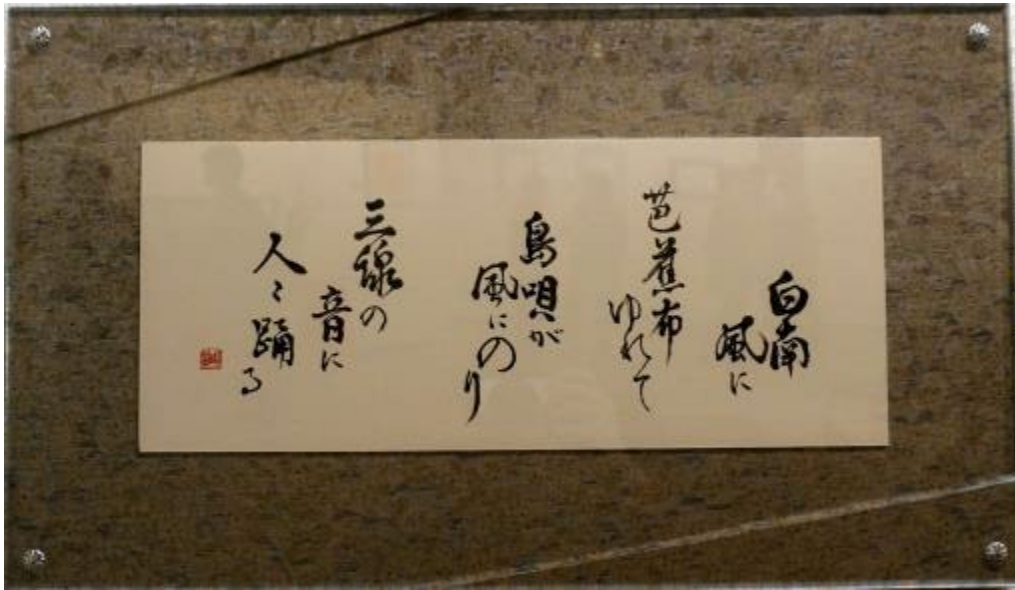 白南
風に
芭蕉布
ゆれて
島唄が
風にのり
三線の
音に
人々踊る